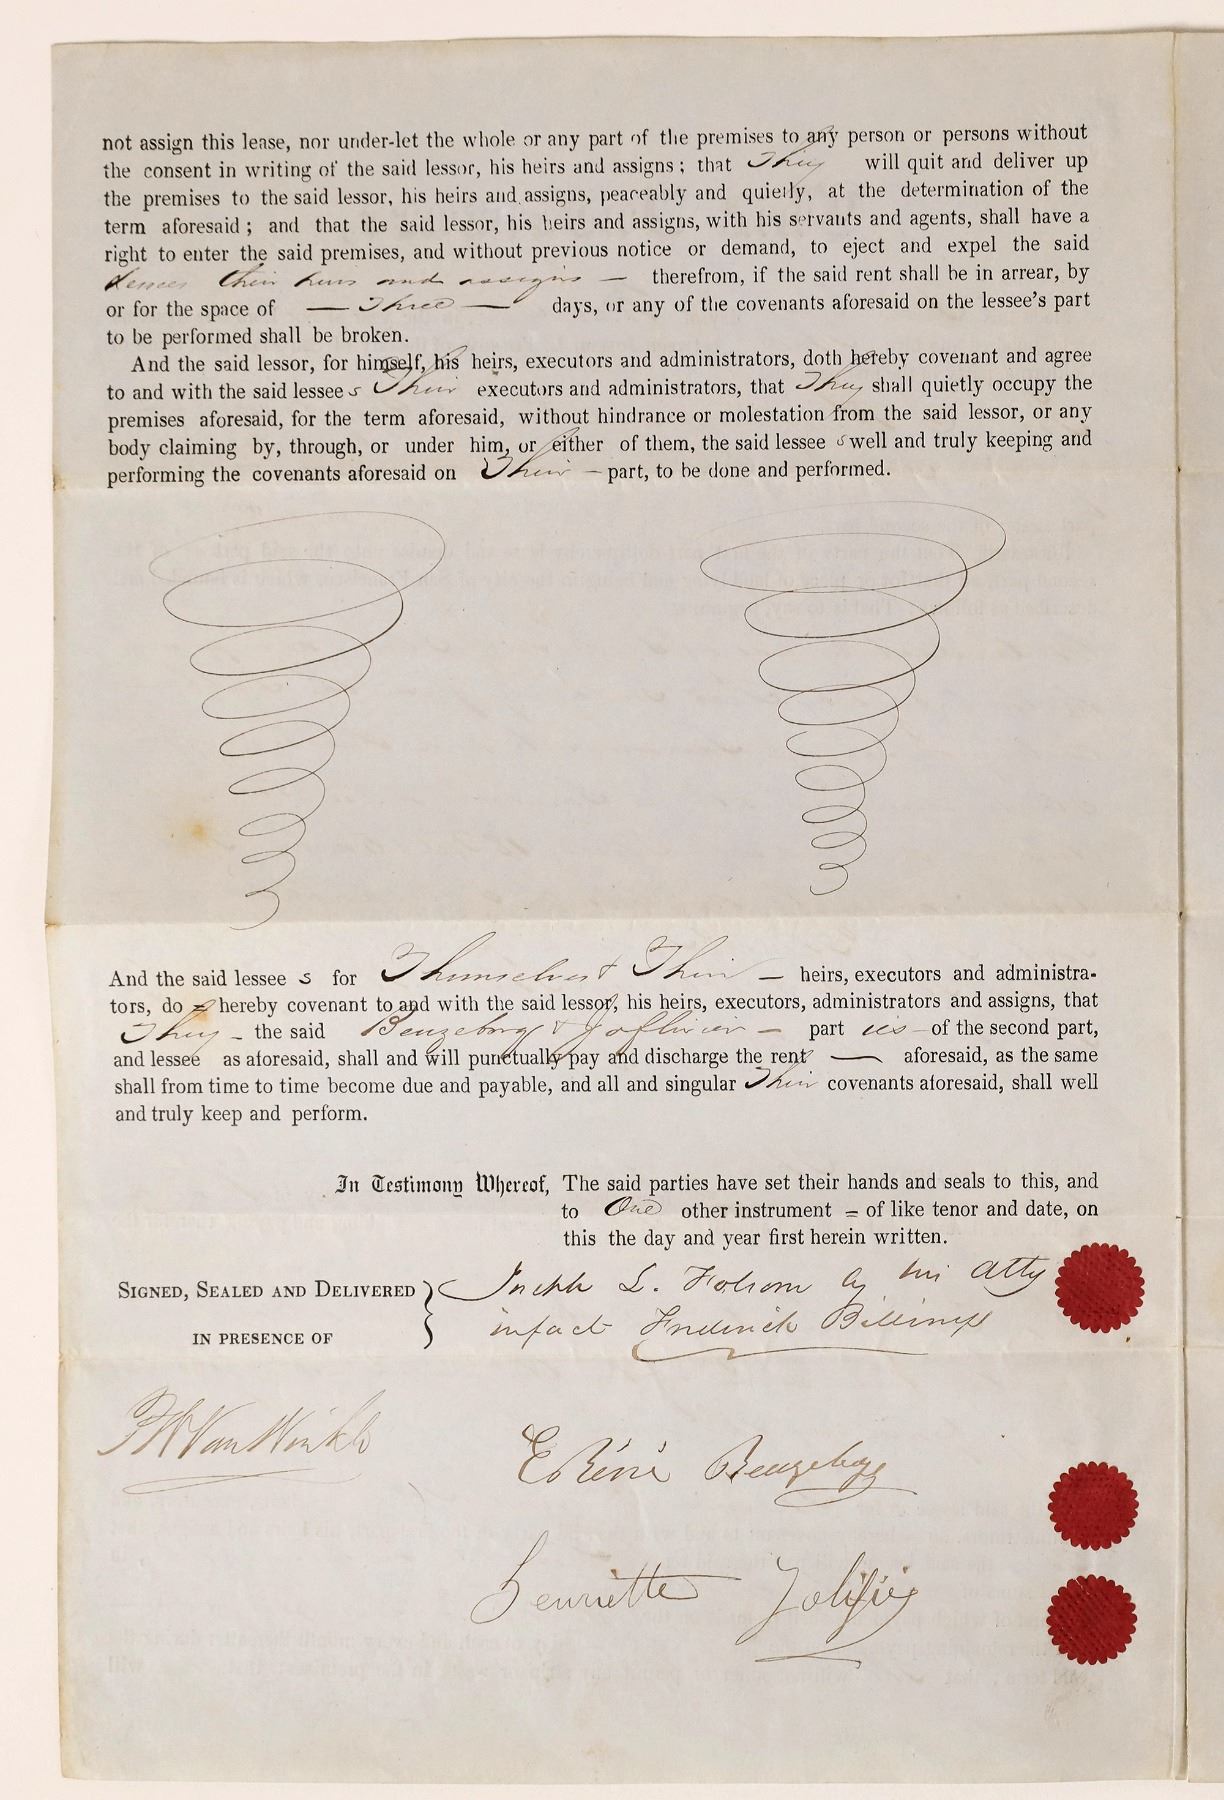 not assign this lease, nor under-let the whole or any part of the premises to any person or persons without
the consent in writing of the said lessor, his heirs and assigns; that They will quit and deliver up
the premises to the said lessor, his heirs and assigns, peaceably and quietly, at the determination of the
term aforesaid; and that the said lessor, his heirs and assigns, with his servants and agents, shall have a
right to enter the said premises, and without previous notice or demand, to eject and expel the said
lessees their heirs and assigns — therefrom, if the said rent shall be in arrear, by
or for the space of — Three — days, or any of the covenants aforesaid on the lessee's part
to be performed shall be broken.
And the said lessor, for himself, his heirs, executors and administrators, doth hereby covenant and agree
to and with the said lessee s Their executors and administrators, that They shall quietly occupy the
premises aforesaid, for the term aforesaid, without hindrance or molestation from the said lessor, or any
body claiming by, through, or under him, or either of them, the said lessee s well and truly keeping and
performing the covenants aforesaid on Their — part, to be done and performed.
And the said lessee s for Themselves & Their — heirs, executors and administra-
tors, do hereby covenant to and with the said lessor, his heirs, executors, administrators and assigns, that
They — the said Beuzeborg & — part ies — of the second part,
and lessee as aforesaid, shall and will punctually pay and discharge the rent — aforesaid, as the same
shall from time to time become due and payable, and all and singular Their covenants aforesaid, shall well
and truly keep and perform.
In Testimony Whereof, The said parties have set their hands and seals to this, and
to One other instrument = of like tenor and date, on
this the day and year first herein written.
SIGNED, SEALED AND DELIVERED } Joseph L. Folsom by his Atty
IN PRESENCE OF infact Frederick Billings
P W Van Winkle
Réné
Henriette